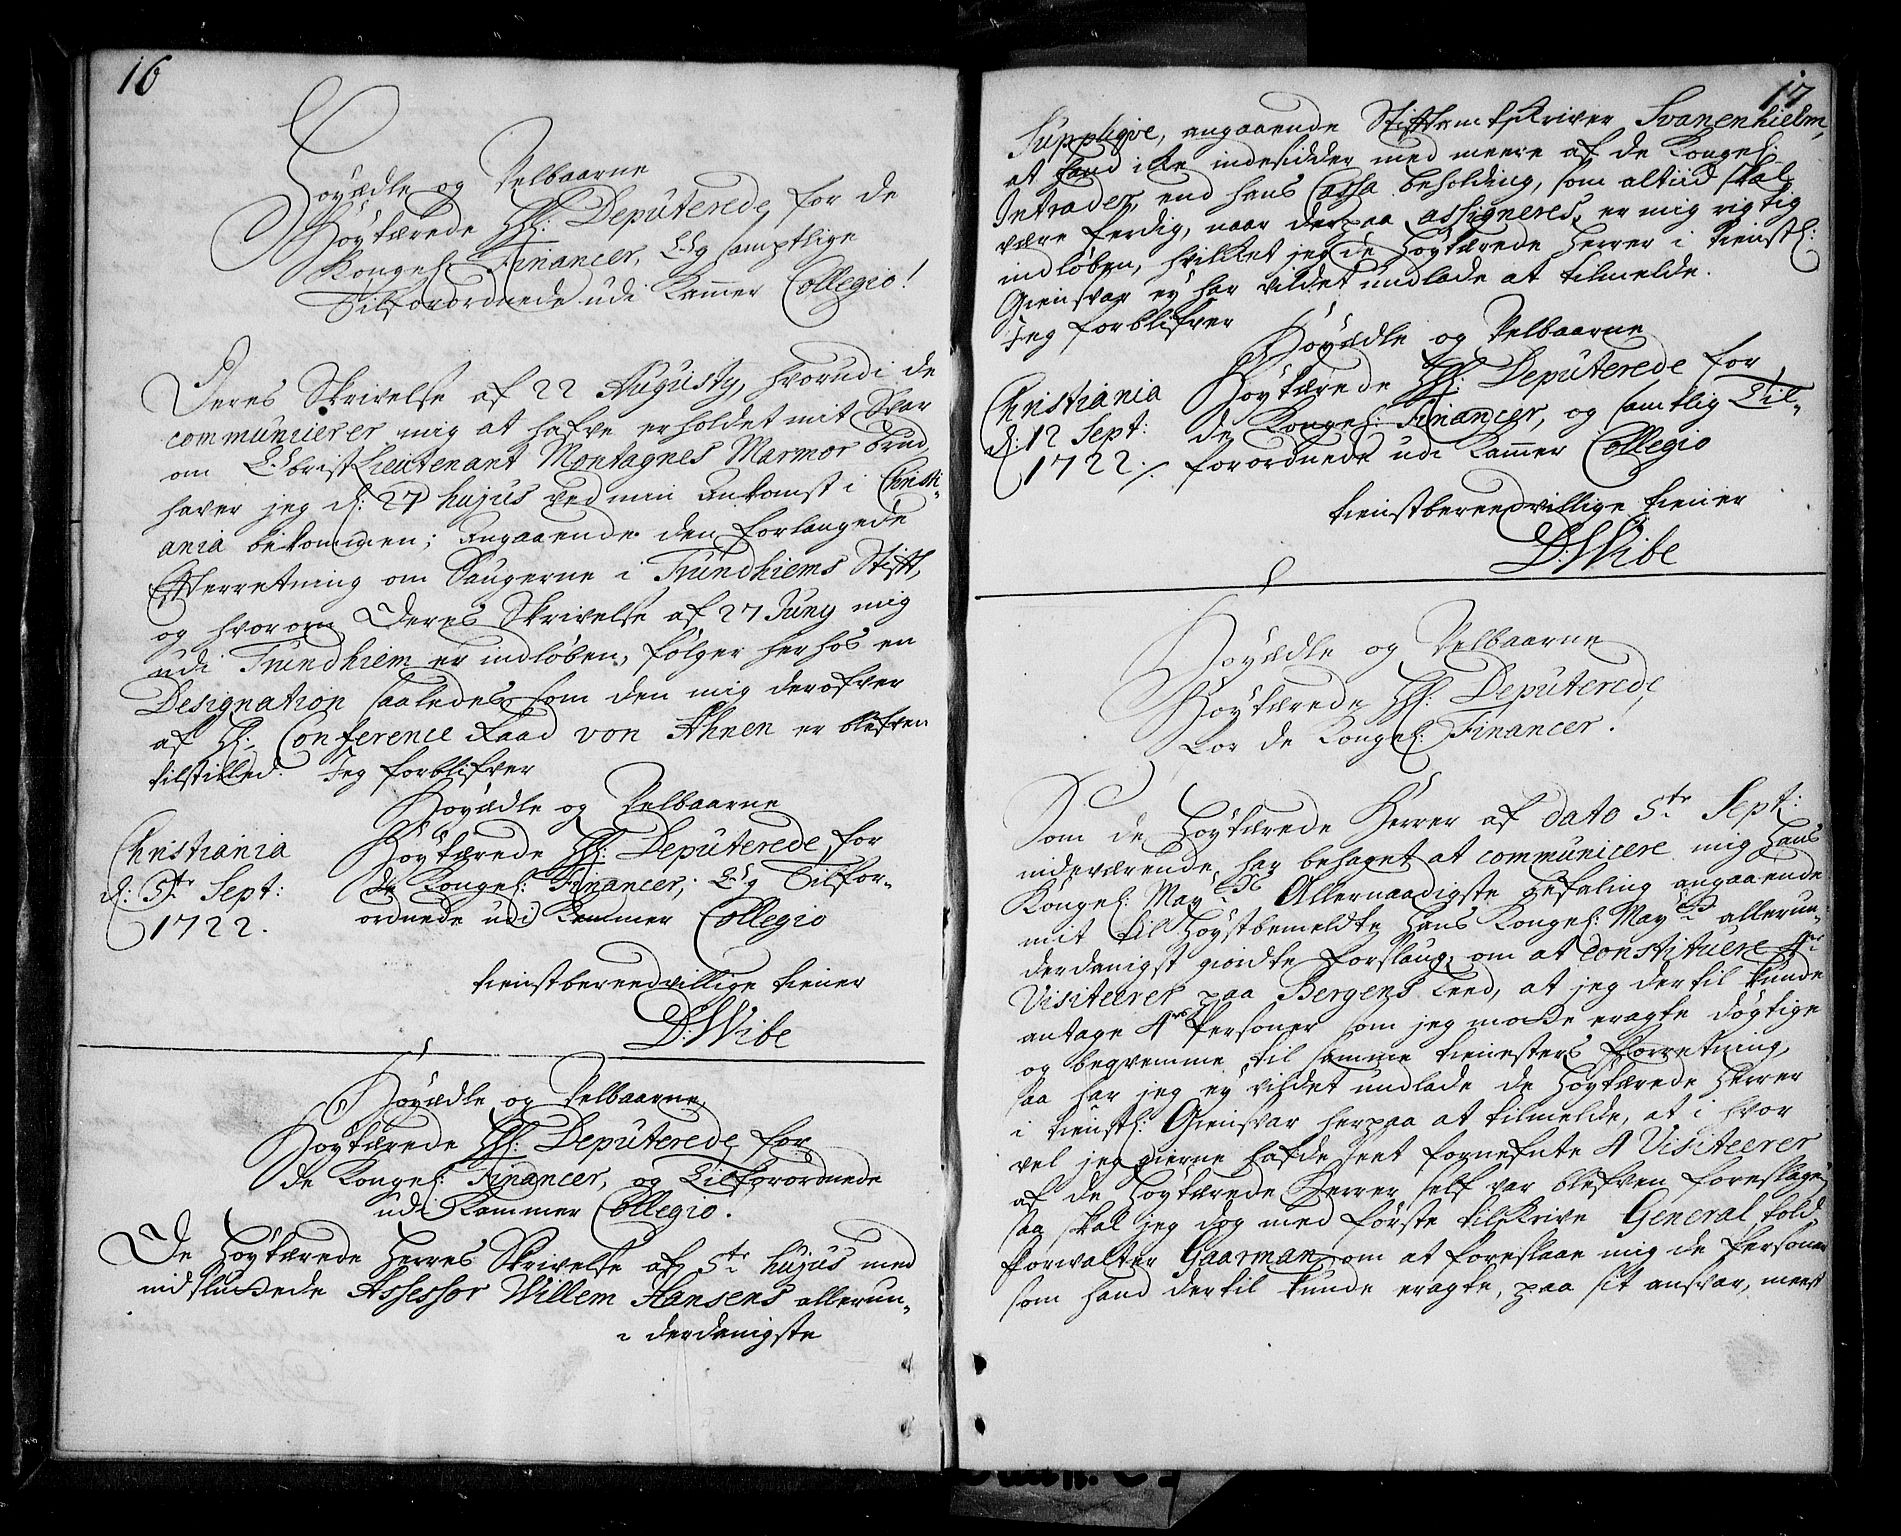 16
Høyædle og Velbaarne
Høytærede HH: Deputerede for de
Kongel: Financer, Og samptlige
Tilforordnede udi Kammer Collegio!
Deres Skrivelse af 22 Augusty, hvorudi de
communicerer mig at hafve erholdet mit Svar
om Obrist Lieutenant Montagnes Marmor brud,
haver jeg d: 27 hujus ved min Ankomst i Christi-
ania bekommen; Angaaende den forlangede
Efterretning om Saugerne i Trundhiems Stift,
og hvorom Deres Skrivelse af 27 Juny mig
udi Trundhiem er indløben, følger herhos en
Designation saaledes som den mig derofver
af H: Conference Raad von Ahnen er blefven
tilstilled. Jeg forblifver
Høyædle og Velbaarne
Høytærede HH: Deputerede for
de Kongel: Financer, Og Tilfor-
ordnede udi Kammer Collegio
Christiania
d: 5te Sept:
1722.
tienstbereedvillige tiener
D: Wibe
Høyædle og Velbaarne
Høytærede HH: Deputerede for
de Kongel: Financer, og Tilforordnede
udi Kammer Collegio.
De Høytærede Herres Skrivelse af 5te hujus med
indsluttede Assessor Willem Hansens allerun-
derdanigste
17
Supplique, angaaende Stiftamtskriver Svanenhielm,
at hand icke indesidder med meere af de Kongel:
Intrader, end hans Cassa beholding, som altiid skal
være ferdig, naar derpaa assigneres, er mig rigtig
indløben, hvilket jeg de Høytærede Herrer i tienstl:
Giensvar ey har vildet undlade at tilmelde.
Jeg forblifver
Høyædle og Velbaarne
Høytærede HH: Deputerede for
de Kongel: Financer, og samtlig Til-
forordnede udi Kammer Collegio
Christiania
d: 12 Sept:
1722 ./.
tienstbereedvillige tiener
D: Wibe
Høyædle og Velbaarne
Høytærede HH: Deputerede
for de Kongel: Financer!
Som de Høytærede Herrer af dato 5te Sept:
indeværende, har behaget at communicere mig Hans
Kongel: Mayts Allernaadigste befaling angaaende
mit til Høystbemeldte Hans Kongel: Mayt allerun-
derdanigst giordte forslaug, om at constituere 4re
Visiteerer paa Bergens Leed, at jeg dertil kunde
antage 4re Personer som jeg motte eragte døgtige
og beqvemme til samme tienesters forretning,
saa har jeg ey vildet undlade de Høytærede Herrer
i tienstl: Giensvar herpaa at tilmelde, at i hvor
vel jeg gierne hafde seet fornefnte 4 Visiteerer
af de Høytærede Herrer self var blefven foreslagen
saa skal jeg dog med første tilskrive General told
forvalter Gaarman om at foreslaae mig de Personer
som hand dertil kunde eragte, paa sit ansvar, meest